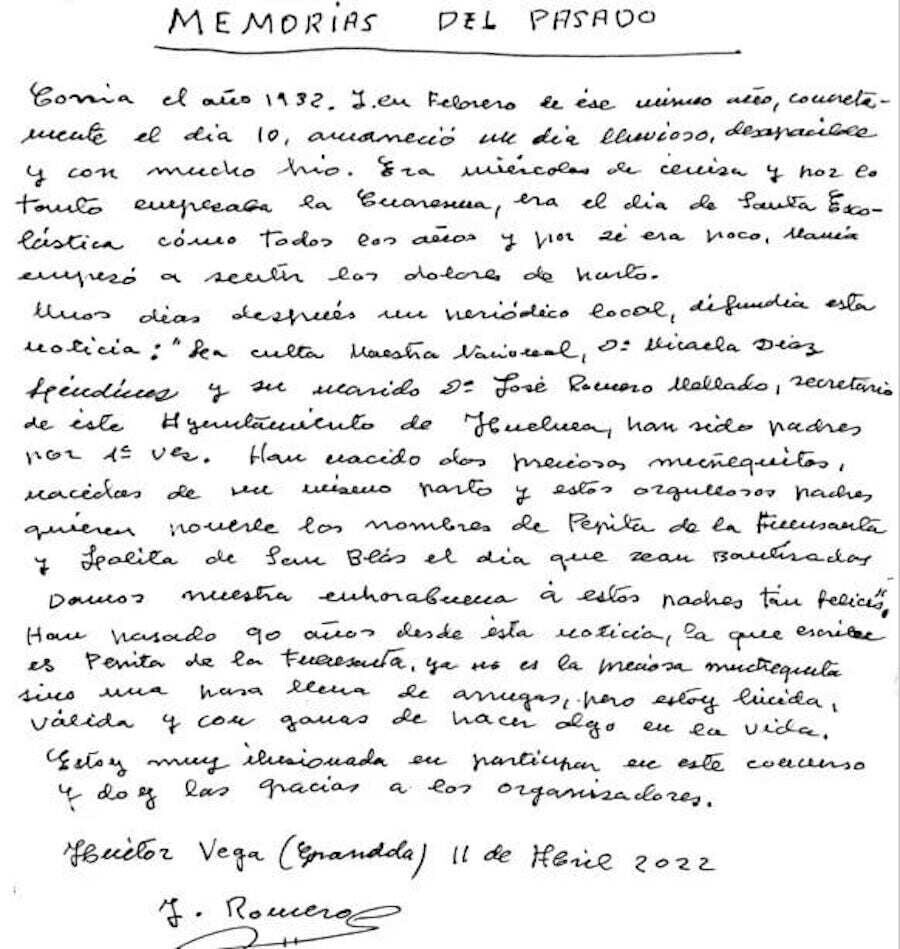 MEMORIAS DEL PASADO
Corria el año 1932. Y en Febrero de ése mismo año, concreta-
mente el dia 10, amaneció un dia lluvioso, desapacible
y con mucho frio. Era miércoles de ceniza y por lo
tanto empezaba la Cuaresma, era el dia de Santa Esco-
lástica cómo todos los años y por si era poco, Mamá
empezó a sentir los dolores de parto.
Unos dias después un periódico local, difundia esta
noticia: "La culta Maestra Nacional, Dª Micaela Diaz
y su marido Dº José Romero Mellado, secretario
de éste Ayuntamiento de Huelma, han sido padres
por 1ª vez. Han nacido dos preciosas muñequitas,
nacidas de un mismo parto y estos orgullosos padres
quieren ponerle los nombres de Pepita de la Fuensanta
y Lolita de San Blás el dia que sean Bautizadas
Damos nuestra enhorabuena á estos padres tán felices".
Han pasado 90 años desde ésta noticia, la que escribe
es Pepita de la Fuensanta, ya no es la preciosa muñequita
sino una pasa llena de arrugas, pero estoy lúcida,
válida y con ganas de hacer algo en la vida.
Estoy muy ilusionada en participar en este concurso
y doy las gracias a los organizadores.
Huétor Vega (Granada) 11 de Abril 2022
J. Romero